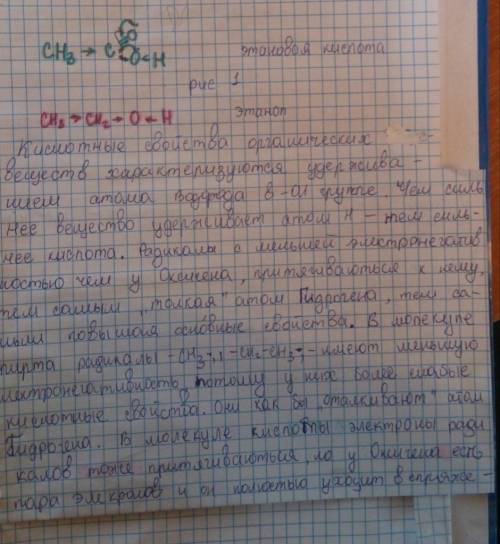 CH₃ → C O O ← H этановая кислота
рис 1
CH₃ → CH₂ → O ← H этанол
Кислотные свойства органических
веществ характеризуются удержива-
нием атома в -OH группе. Чем силь
нее вещество удерживает атом H - тем силь-
нее кислота. Радикалы с меньшей электронегатив
ностью чем у Оксигена, притягиваються к нему,
тем самым "толкая" атом Гидрогена, тем са-
мым повышая основные свойства. В молекуле
пирта радикалы -CH₃-, -CH₂-CH₃-, - имеют меньшую
лектронегативность, потому у них более слабые
кислотные свойства. Они как бы "отталкивают" атом
Гидрогена. В молекуле кислоты электроны ради
калов тоже притягиваються, но у Оксигена есть
пара и он полностью уходит в